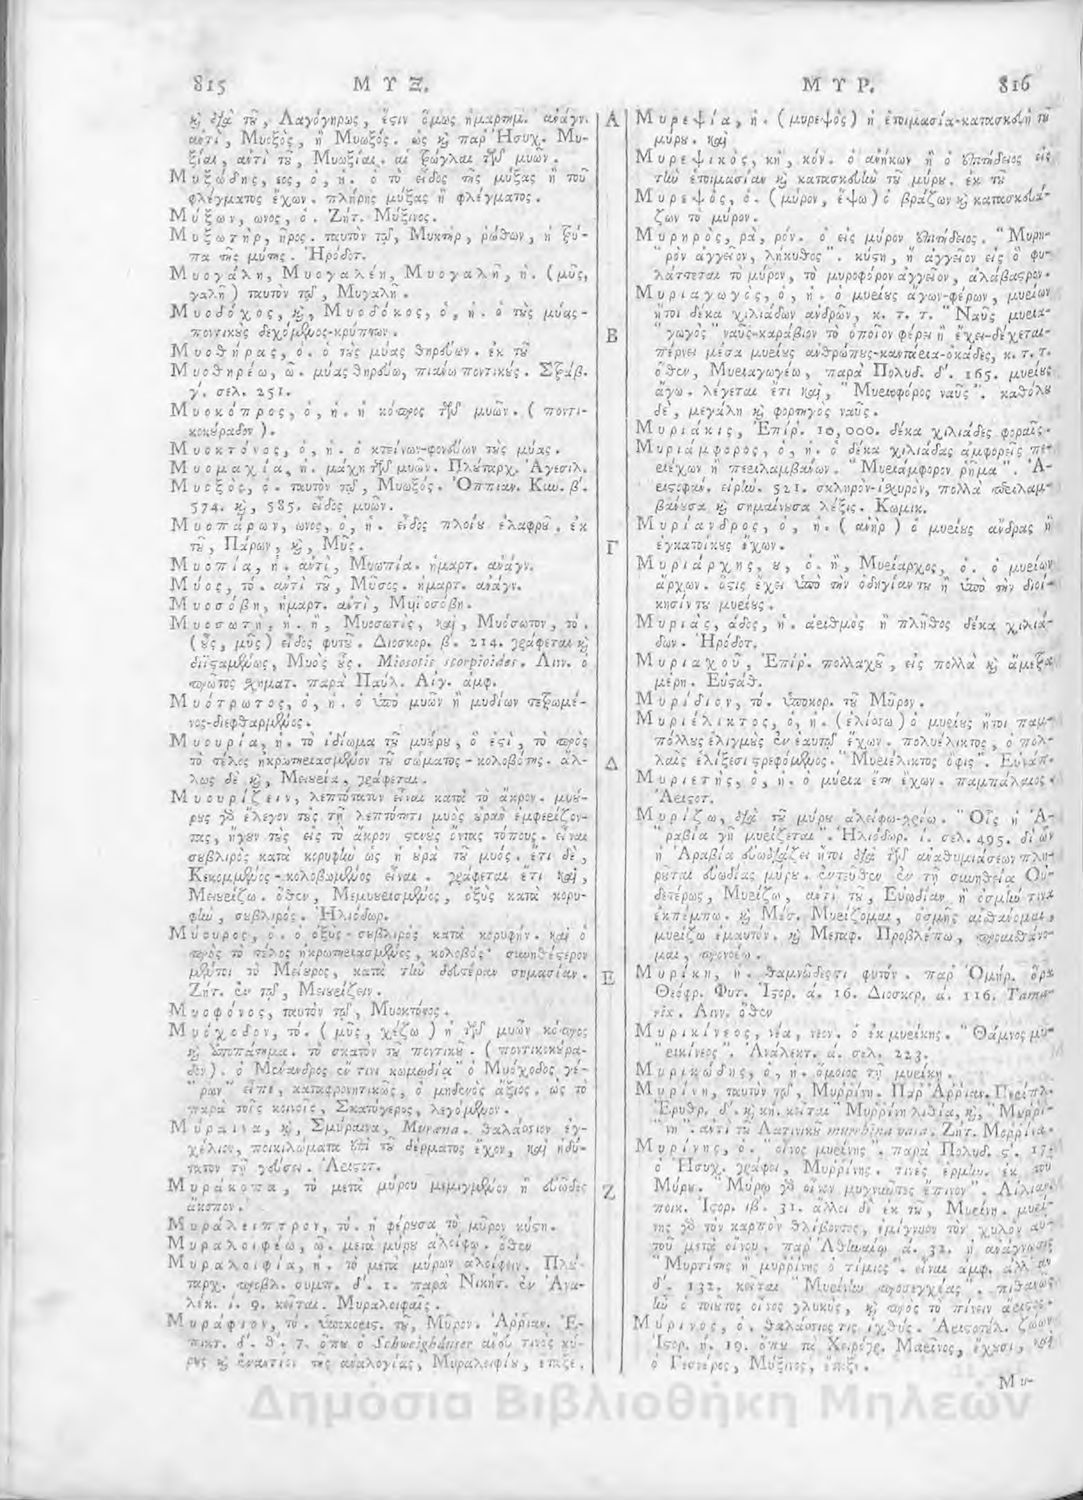 815 ΜΥΞ.
καὶ διὰ τοῦ, Λαγόγηρως, ἔστιν ὅμως ἡμαρτημ. ἀνάγν.
ἀντὶ, Μυοξὸς, ἢ Μυωξός. ὡς καὶ παρ' Ἡσυχ. Μυ-
ξίαι, ἀντὶ τοῦ, Μυωξίαι. αἱ τρώγλαι τῶν μυῶν.
Μυξώδης, εος, ὁ, ἡ. ὁ τὸ εἶδος τῆς μύξας ἢ τοῦ
φλέγματος ἔχων. πλήρης μύξας ἢ φλέγματος.
Μύξων, ωνος, ὁ. Ζήτ. Μύξινος.
Μυξωτὴρ, ῆρος. ταυτὸν τῷ, Μυκτὴρ, ῥώθων, ἡ τρύ-
πα τῆς μύτης. Ἡρόδοτ.
Μυογάλη, Μυογαλέη, Μυογαλῆ, ἡ. (μῦς,
γαλῆ) ταυτὸν τῷ, Μυγαλῆ.
Μυοδόχος, καὶ, Μυοδόκος, ὁ, ἡ. ὁ τοὺς μύας-
ποντικοὺς δεχόμενος-κρύπτων.
Μυοθήρας, ὁ. ὁ τοὺς μύας θηρεύων. ἐκ τοῦ
Μυοθηρέω, ῶ. μύας θηρεύω, πιάνω ποντικούς. Στράβ.
γ'. σελ. 251.
Μυοκόπρος, ὁ, ἡ. ἡ κόπρος τῶν μυῶν. (ποντι-
κοκούραδον).
Μυοκτόνος, ὁ, ἡ. ὁ κτείνων-φονεύων τοὺς μύας.
Μυομαχία, ἡ. μάχη τῶν μυῶν. Πλούταρχ. Ἀγεσιλ.
Μυοξὸς, ὁ. ταυτὸν τῷ, Μυωξός. Ὀππιαν. Κυν. β'.
574. καὶ, 585. εἶδος μυῶν.
Μυοπάρων, ωνος, ὁ, ἡ. εἶδος πλοίου ἐλαφροῦ. ἐκ
τοῦ, Πάρων, καὶ, Μῦς.
Μυοπία, ἡ. ἀντὶ, Μυωπία. ἡμαρτ. ἀνάγν.
Μύος, τό. ἀντὶ τοῦ, Μῦσος. ἡμαρτ. ἀνάγν.
Μυοσόβη, ἡμαρτ. ἀντὶ, Μυϊοσόβη.
Μυοσωτὴ, ἡ. ἢ, Μυοσωτὶς, καὶ, Μυόσωτον, τό.
(οὖς, μῦς) εἶδος φυτοῦ. Διοσκορ. β'. 214. γράφεται καὶ
διϊσταμένως, Μυὸς οὖς. Miosotis scorpioides. Λιν. ὁ
πρῶτος σχηματ. παρὰ Παύλ. Αἰγ. ἀμφ.
Μυότρωτος, ὁ, ἡ. ὁ ὑπὸ μυῶν ἢ μυδίων τετρωμέ-
νος-διεφθαρμένος.
Μυουρία, ἡ. τὸ ἰδίωμα τοῦ μυούρου, ὅ ἐστι, τὸ πρὸς
τὸ τέλος ἠκρωτηριασμένον τοῦ σώματος-κολοβότης. ἀλ-
λως δὲ καὶ, Μειουρία, γράφεται.
Μυουρίζειν, λεπτότατον εἶναι κατὰ τὸ ἄκρον. μυού-
ρους γὰρ ἔλεγον τοὺς τῇ λεπτότητι μυὸς οὐρὰν ἐμφερείζον-
τας, ἤγουν τοὺς εἰς τὸ ἄκρον στενοὺς ὄντας τόπους. εἶναι
σουβλιρὸς κατὰ κορυφὴν ὡς ἡ οὐρὰ τοῦ μυός. ἔτι δὲ,
Κεκομμένος-κολοβωμένος εἶναι. γράφεται ἔτι καὶ,
Μειουρίζω. ὅθεν, Μεμυουρισμένος, ὀξὺς κατὰ κορυ-
φὴν, σουβλιρός. Ἡλιόδωρ.
Μύουρος, ὁ. ὁ ὀξὺς-σουβλιρὸς κατὰ κορυφήν. καὶ ὁ
πρὸς τὸ τέλος ἠκρωτηριασμένος, κολοβός· συνηθέστερον
μέντοι τὸ Μείουρος, κατὰ τὴν δευτέραν σημασίαν.
Ζήτ. ἐν τῷ, Μειουρίζειν.
Μυοφόνος, ταυτὸν τῷ, Μυοκτόνος.
Μυόχοδον, τό. (μῦς, χέζω) ἡ τῶν μυῶν κόπρος
καὶ ἀποπάτημα. τὸ σκατὸν τοῦ ποντικοῦ. (ποντικοκούρα-
δον). ὁ Μένανδρος ἔν τινι κωμῳδίᾳ "ὁ Μυόχοδος γέ-
"ρων" εἶπε, καταφρονητικῶς, ὁ μηδενὸς ἄξιος. ὡς τὸ
παρὰ τοῖς κοινοῖς, Σκατόγερος, λεγόμενον.
Μύραινα, καὶ, Σμύραινα, Murena. θαλάσσιον ἐγ-
χέλιον, ποικιλώματα ἐπὶ τοῦ δέρματος ἔχον, καὶ ἡδύ-
τατον τῇ γεύσει. Ἀριστοτ.
Μυράκοπα, τὸ μετὰ μύρου μεμιγμένον ἢ εὐῶδες
ἄκοπον.
Μυράλειπτρον, τό. ἡ φέρουσα τὸ μῦρον κύστη.
Μυραλοιφέω, ῶ. μετὰ μύρου ἀλείφω. ὅθεν
Μυραλοιφία, ἡ. τὸ μετὰ μύρων ἀλείφειν. Πλού-
ταρχ. προβλ. συμπ. δ'. 1. παρὰ Νικήτ. ἐν Ἀνα-
λέκ. ί. 9. κεῖται. Μυραλοιφαις.
Μυράφιον, τό. ὑποκορισ. τοῦ, Μῦρον. Ἀρριαν. Ἐ-
πικτ. δ'. θ'. 7. ὅπου ὁ Schweighäuser
ρους καὶ ἐναντίον τῆς ἀναλογίας, Μυραλοιφίου,
816 ΜΥΡ.
Μυρεψία, ἡ. (μυρεψὸς) ἡ ἑτοιμασία-κατασκευὴ τοῦ
μύρου. καὶ
Μυρεψικὸς, κὴ, κόν. ὁ ἀνήκων ἢ ὁ ἐπιτήδειος εἰς
τὴν ἑτοιμασίαν καὶ κατασκευὴν τοῦ μύρου. ἐκ τοῦ
Μυρεψὸς, ὁ. (μύρον, ἕψω) ὁ βράζων καὶ κατασκευά-
ζων τὸ μύρον.
Μυρηρὸς, ρὰ, ρόν. ὁ εἰς μύρον ἐπιτήδειος. "Μυρη-
"ρὸν ἀγγεῖον, λήκυθος". κύστη, ἢ ἀγγεῖον εἰς ὃ φυ-
λάττεται τὸ μύρον, τὸ μυροφόρον ἀγγεῖον, ἀλάβαστρον.
Μυριαγωγὸς, ὁ, ἡ. ὁ μυρίους ἄγων-φέρων, μυρίων
ἤτοι δέκα χιλιάδων ἀνδρῶν, κ. τ. τ. "Ναῦς μυρια-
"γωγὸς" ναῦς-καράβιον τὸ ὁποῖον φέρει ἢ ἔχει-δέχεται-
πέρνει μέσα μυρίους ἀνθρώπους-κανταρια-οκάδες, κ. τ. τ.
ὅθεν, Μυριαγωγέω, παρὰ Πολυδ. δ'. 165. μυρίους
ἄγω. λέγεται ἔτι καὶ, "Μυριοφόρος ναῦς". καθόλου
δὲ, μεγάλη καὶ φορτηγὸς ναῦς.
Μυριάκις, Ἐπίρ. 10,000. δέκα χιλιάδες φοραῖς.
Μυριάμφορος, ὁ, ἡ. ὁ δέκα χιλιάδας ἀμφορεῖς πε-
ριέχων ἢ περιλαμβάνων. "Μυριάμφορον ῥῆμα". Ἀ-
ριστοφάν. εἰρήν. 521. σκληρὸν-ἰσχυρὸν, πολλὰ περιλαμ-
βάνουσα καὶ σημαίνουσα λέξις. Κωμικ.
Μυρίανδρος, ὁ, ἡ. (ἀνὴρ) ὁ μυρίους ἄνδρας ἢ
ἐγκατοίκους ἔχων.
Μυριάρχης, ου, ὁ. ἢ, Μυρίαρχος, ὁ. ὁ μυρίων
ἄρχων. ὅστις ἔχει ὑπὸ τὴν ὁδηγίαν του ἢ ὑπὸ τὴν διοί-
κησίν του μυρίους.
Μυριὰς, άδος, ἡ. ἀριθμὸς ἢ πλῆθος δέκα χιλιά-
δων. Ἡρόδοτ.
Μυριαχοῦ, Ἐπίρ. πολλαχοῦ, εἰς πολλὰ καὶ ἄμετρα
μέρη. Εὐστάθ.
Μυρίδιον, τό. ὑποκορ. τοῦ Μῦρον.
Μυριέλικτος, ὁ, ἡ. (ἑλίσσω) ὁ μυρίους ἤτοι παμ-
πόλλους ἑλιγμοὺς ἐν ἑαυτῷ ἔχων. πολυέλικτος, ὁ πολ-
λαῖς ἑλίξεσι στρεφόμενος. "Μυριέλικτος ὄφις". Εὐνάπ.
Μυριετὴς, ὁ, ἡ. ὁ μύρια ἔτη ἔχων. παμπάλαιος.
Ἀριστοτ.
Μυρίζω, διὰ τοῦ μύρου ἀλείφω-χρίω. "Οἷς ἡ Ἀ-
"ραβία γῆ μυρίζεται". Ἡλιόδωρ. ί. σελ. 495. δι' ὧν
ἡ Ἀραβία εὐωδιάζει ἤτοι διὰ τῶν ἀναθυμιάσεων πλη-
ροῦται εὐωδίας μύρου. ἐντεῦθεν ἐν τῇ συνηθείᾳ Οὐ-
δετέρως, Μυρίζω, ἀντὶ τοῦ, Εὐωδίαν ἢ ὀσμήν τινα
ἐκπέμπω. καὶ Μέσ. Μυρίζομαι, ὀσμῆς αἰσθάνομαι,
μυρίζω ἐμαυτόν. καὶ Μεταφ. Προβλέπω, προαισθάνο-
μαι, προνοέω.
Μυρίκη, ἡ. θαμνῶδές τι φυτόν. παρ' Ὁμήρ. ὅρα
Θεόφρ. Φυτ. Ἱστορ. ά. 16. Διοσκορ. ά. 116. Tama-
rix. Λινν. ὅθεν
Μυρικίνεος, νέα, νεον. ὁ ἐκ μυρίκης. "Θάμνος μυ-
"ρικίνεος". Ἀνάλεκτ. ά. σελ. 223.
Μυρικώδης, ὁ, ἡ. ὅμοιος τῇ μυρίκῃ.
Μυρίνη, ταυτὸν τῷ, Μυρρίνη. Παρ' Ἀρριαν. Περίπλ.
Ἐρυθρ. δ'. καὶ κη. κεῖται "Μυρρίνη λιθία, καὶ, "Μυρρί-
"νη". ἀντὶ τοῦ Λατινικοῦ murrhina vasa. Ζήτ. Μορρίνα.
Μυρίνης, ὁ. "οἶνος μυρίνης". παρὰ Πολυδ. ς'. 17.
ὁ Ἡσυχ. γράφει, Μυρρίνης. τινὲς ἑρμην. ἐκ τοῦ
Μύρου. "Μύρῳ γὰρ οἶνον μιγνύντες ἔπινον". Αἰλιαν.
ποικ. Ἱστορ. ιβ'. 31. ἄλλοι δὲ ἐκ τοῦ, Μυρίνη. μυρί-
νης γὰρ τὸν καρπὸν θλίβοντες, ἐμίγνυον τὸν χυλὸν αὐ-
τοῦ μετὰ οἴνου. παρ' Ἀθηναίῳ ά. 32. ἡ ἀνάγνωσις
"Μυρτίτης ἢ μυρρίνης ὁ τίμιος". εἶναι ἀμφ. ἀλλ' ἐν
δ'. 132. κεῖται "Μυρίνην προσεγχέας". πιθανῶς
ἦν ὁ τοιοῦτος οἶνος γλυκὺς, καὶ πρὸς τὸ πίνειν ἄριστος.
Μύρινος, ὁ. θαλάσσιός τις ἰχθύς. Ἀριστοτέλ. ζώων
Ἱστορ. ή. 19. ὅπου τὰ Χειρόγρ. Μαρῖνος, ἔχουσι, καὶ
ὁ Γεσνέρος, Μύξινος,
Μυ-
Α
Β
Γ
Δ
Ε
Ζ
Δημόσια Βιβλιοθήκη Μηλεών